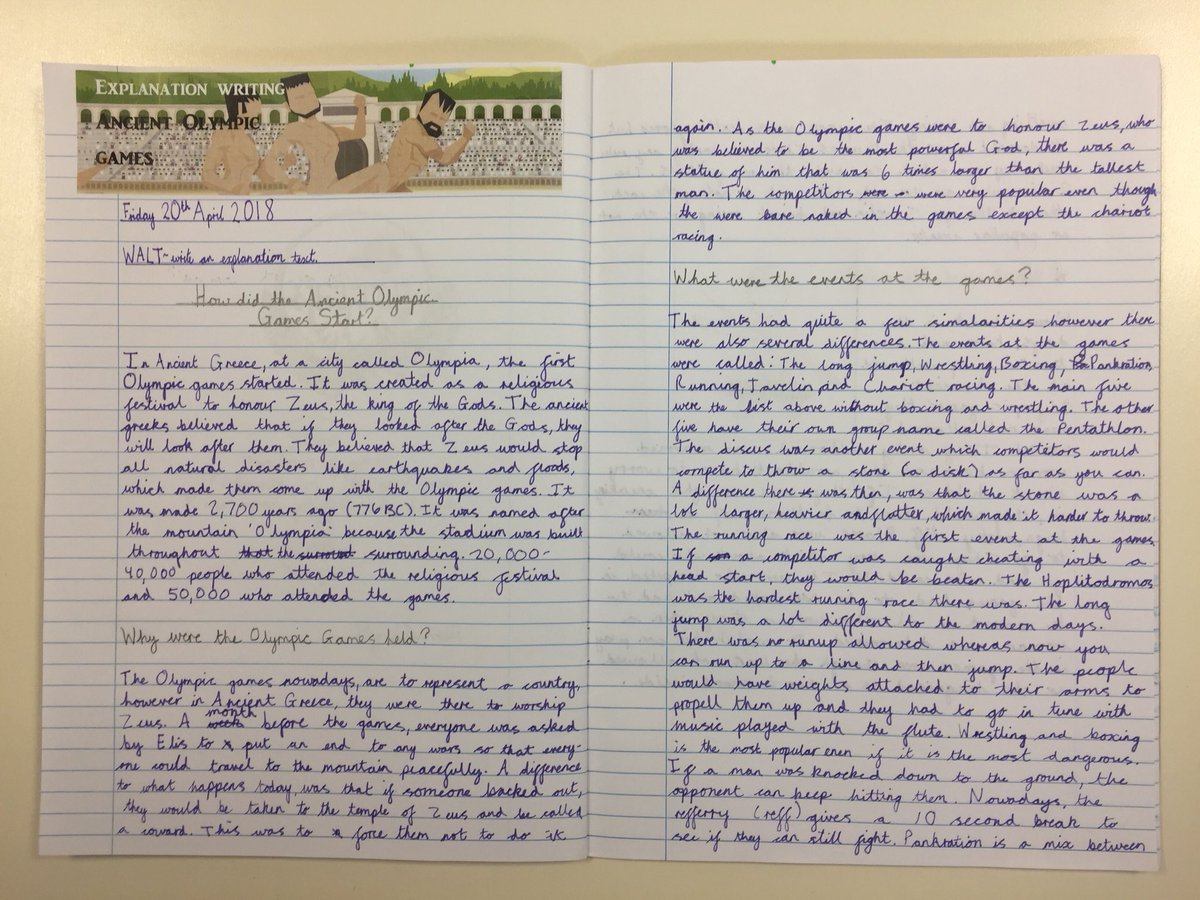 EXPLANATION WRITING
ANCIENT OLYMPIC
GAMES
Friday 20th April 2018
WALT~write an explanation text.
How did the Ancient Olympic
Games Start?
In Ancient Greece, at a city called Olympia, the first
Olympic games started. It was created as a religious
festival to honour Zeus, the king of the Gods. The ancient
greeks believed that if they looked after the Gods, they
will look after them. They believed that Zeus would stop
all natural disasters like earthquakes and floods,
which made them come up with the Olympic games. It
was made 2,700 years ago (776BC). It was named after
the mountain 'Olympia' because the stadium was built
throughout that the surroud surrounding. 20,000-
40,000 people who attended the religious festival
and 50,000 who attended the games.
Why were the Olympic Games held?
The Olympic games nowadays, are to represent a country,
however in Ancient Greece, they were there to worship
Zeus. A week month before the games, everyone was asked
by Elis to put an end to any wars so that every-
one could travel to the mountain peacefully. A difference
to what happens today, was that if someone backed out,
they would be taken to the temple of Zeus and be called
a coward. This was to force them not to do it
again. As the Olympic games were to honour Zeus, who
was believed to be the most powerful God, there was a
statue of him that was 6 times larger than the tallest
man. The competitors were were very popular even though
the were bare naked in the games except the chariot
racing.
What were the events at the games?
The events had quite a few simalarities however there
were also several differences. The events at the games
were called: The long jump, Wrestling, Boxing, Pankration,
Running, Javelin, and Chariot racing. The main five
were the list above without boxing and wrestling. The other
five have their own group name called the Pentathlon.
The discus was another event which competitors would
compete to throw a stone (a disk) as far as you can.
A difference there is was then, was that the stone was a
lot larger, heavier and flatter, which made it harder to throw.
The running race was the first event at the games.
If a competitor was caught cheating with a
head start, they would be beaten. The Hoplitodromos
was the hardest running race there was. The long
jump was a lot different to the modern days.
There was no runup allowed whereas now you
can run up to a line and then jump. The people
would have weights attached to their arms to
propell them up and they had to go in tune with
music played with the flute. Wrestling and boxing
is the most popular even if it is the most dangerous.
If a man was knocked down to the ground, the
opponent can keep hitting them. Nowadays, the
refferry (reff) gives a 10 second break to
see if they can still fight. Pankration is a mix between